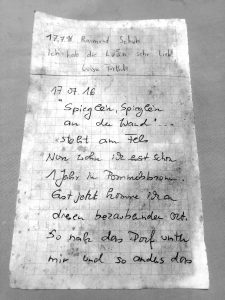 17.7.16 Raimund Schub
Ich hab die
17.07.16
"Spieglein, Spieglein
an der Wand"...
steht am Fels
Nun wohn ich erst schon
1 Jahr in Pommelsbrunn.
Erst jetzt komme ich an
diesen bezaubernden Ort.
So nah das Dorf unter
mir und so anders das